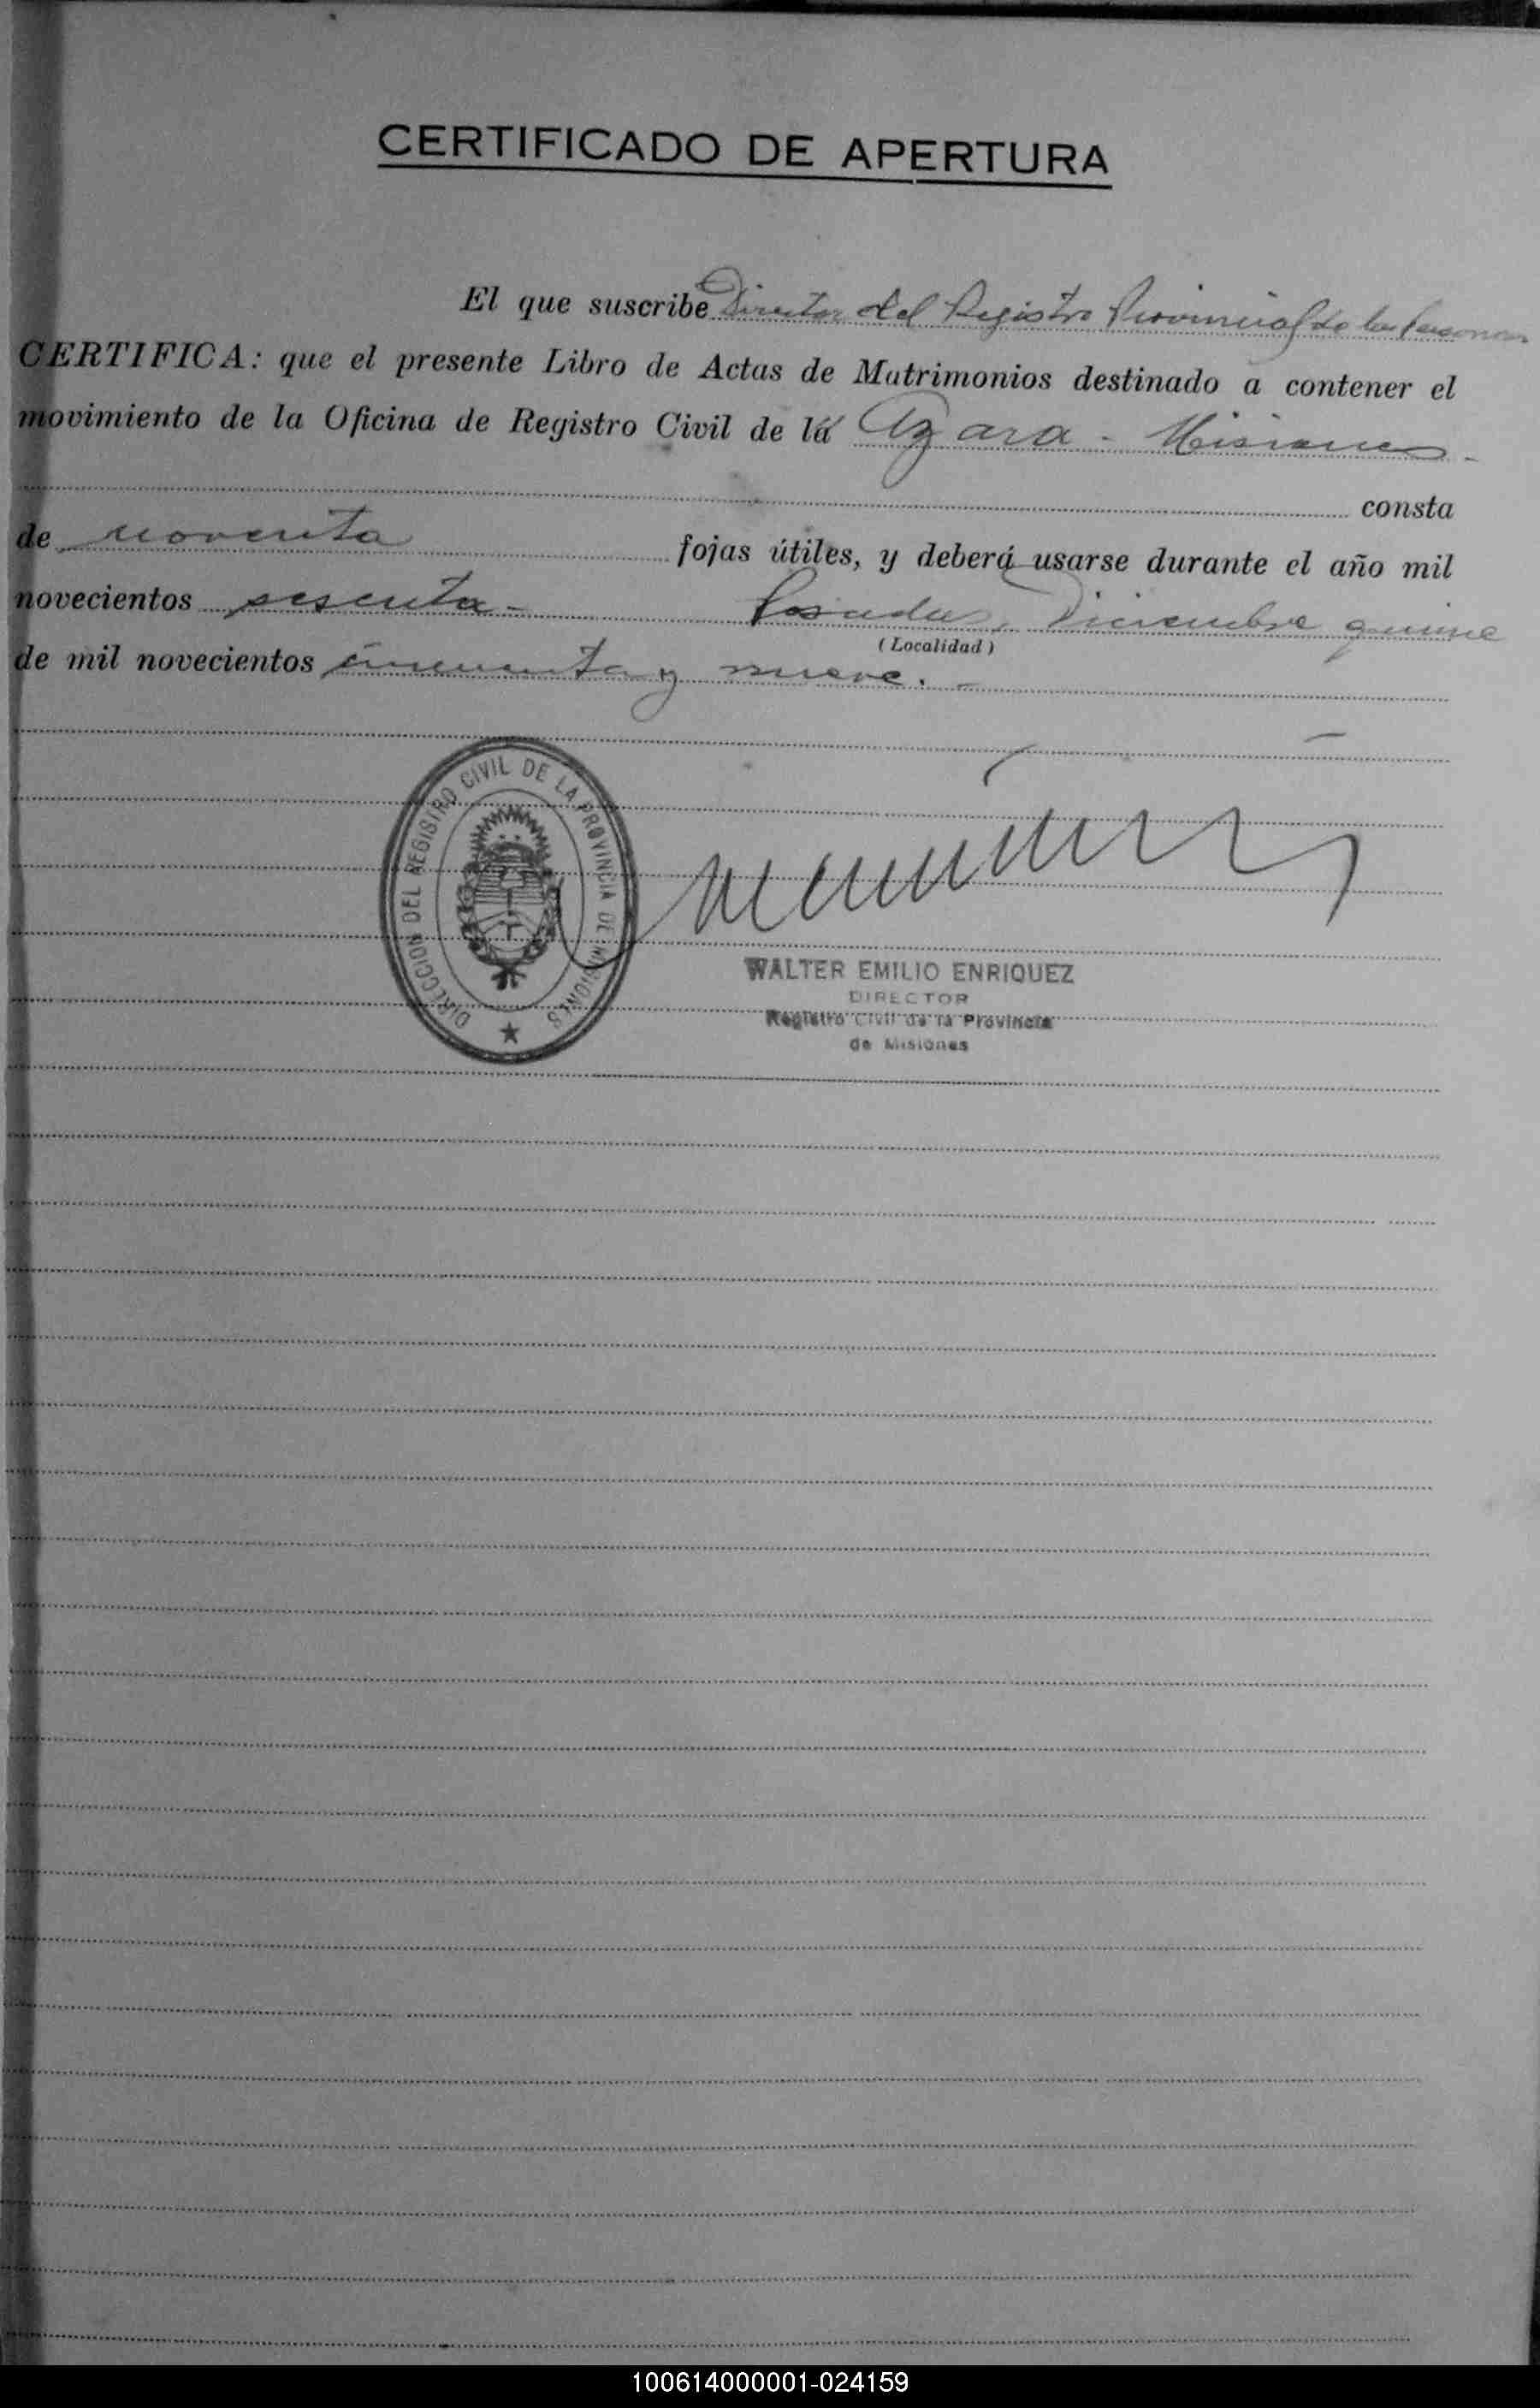 CERTIFICADO DE APERTURA
El que suscribe Director del Registro Provincial de las Personas
CERTIFICA: que el presente Libro de Actas de Matrimonios destinado a contener el
movimiento de la Oficina de Registro Civil de la Azara - Misiones -
consta
de noventa fojas útiles, y deberá usarse durante el año mil
novecientos sesenta - Posadas, Diciembre quince
(Localidad)
de mil novecientos cincuenta y nueve. -
DIRECCION DEL REGISTRO CIVIL DE LA PROVINCIA DE MISIONES
WALTER EMILIO ENRIQUEZ
DIRECTOR
Registro Civil de la Provincia
de Misiones
100614000001-024159